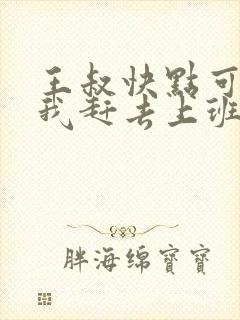 王叔快點可
我赶去上班
胖海绵寶寶